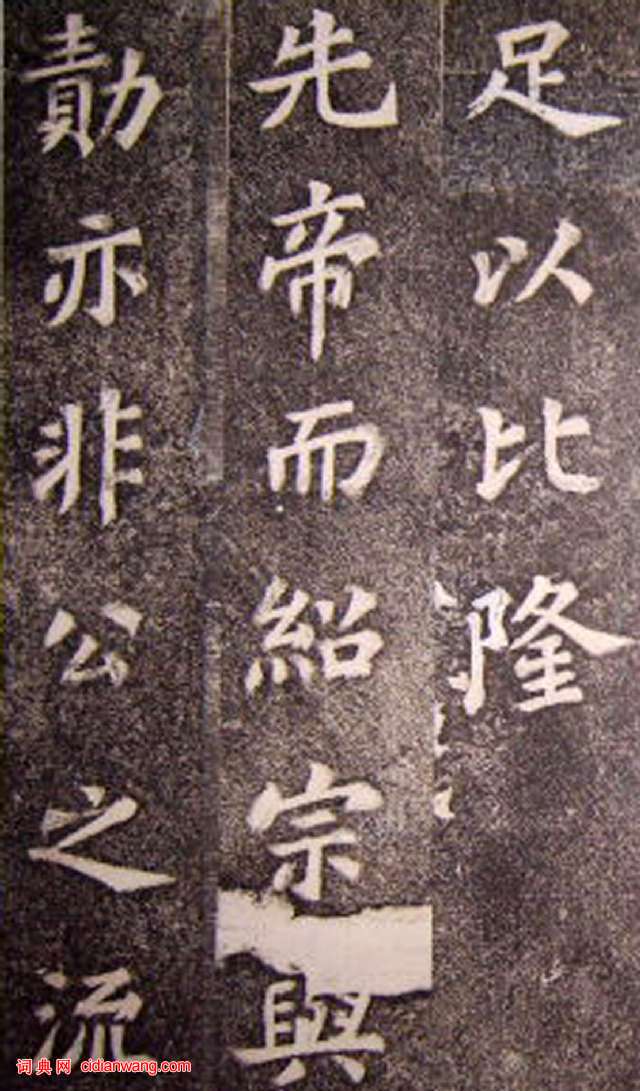 足以比隆
先帝而紹宗與
勣亦非公之流
词典网 cidianwang.com